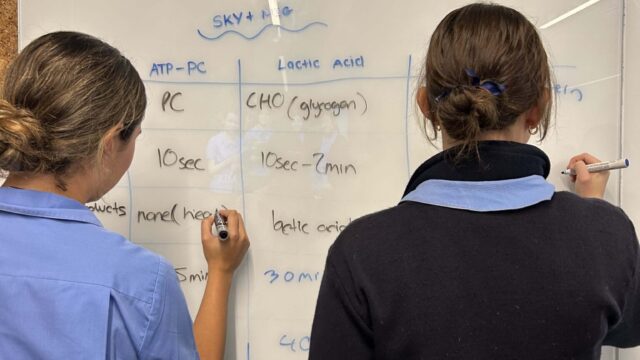 SKY +
ATP-PC Lactic Acid
PC CHO (glycogen)
10sec 10sec-2min
none (hea lactic acid
5min 30min